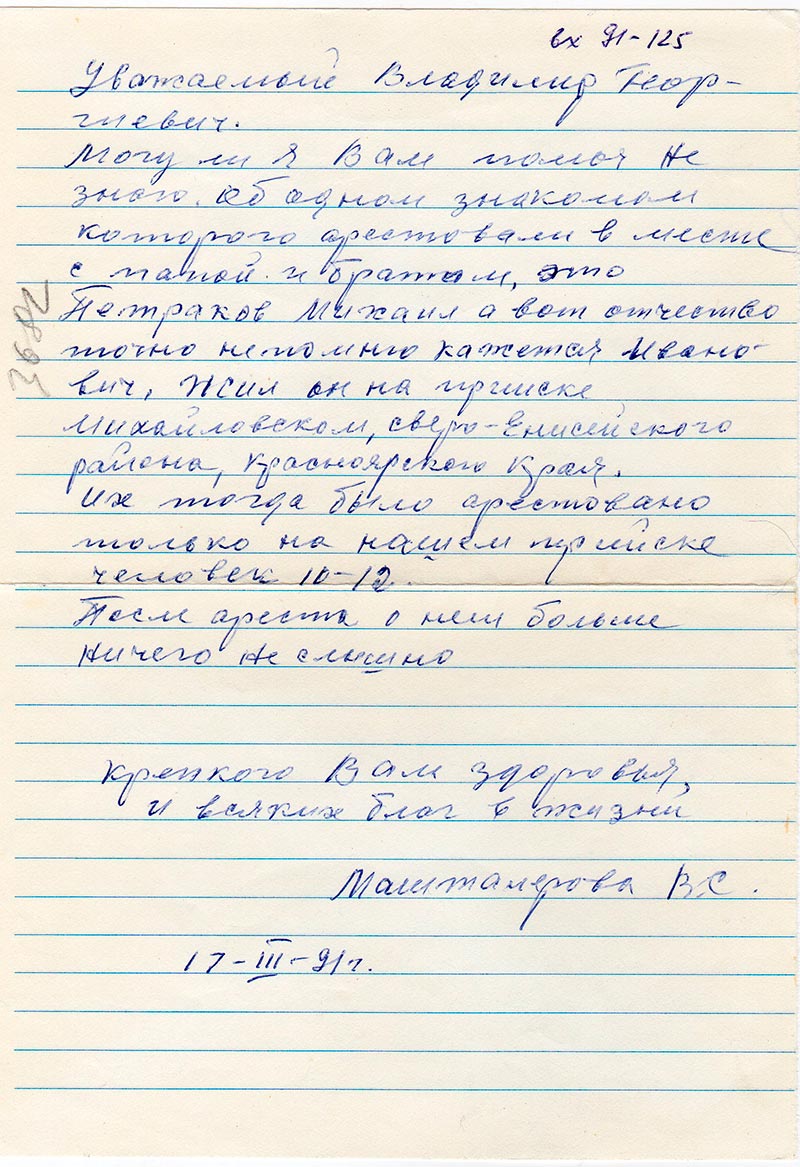 вх 91-125
Уважаемый Владимир Геор-
гиевич.
Могу ли я Вам помоч не
знаю. Об одном знакомом
которого арестовали в месте
с папой и братом, это
Петраков Михаил а вот отчество
точно непомню кажется Ивано-
вич, Жил он на прииске
Михайловском, сверо-Енисейского
района, Красноярского Края.
Их тогда было арестовано
только на нашем прииске
человек 10-12.
После ареста о нем больше
ничего не слышно
крепкого Вам здоровья,
и всяких благ в жизни
Машталерова В.С.
17-III-91г.